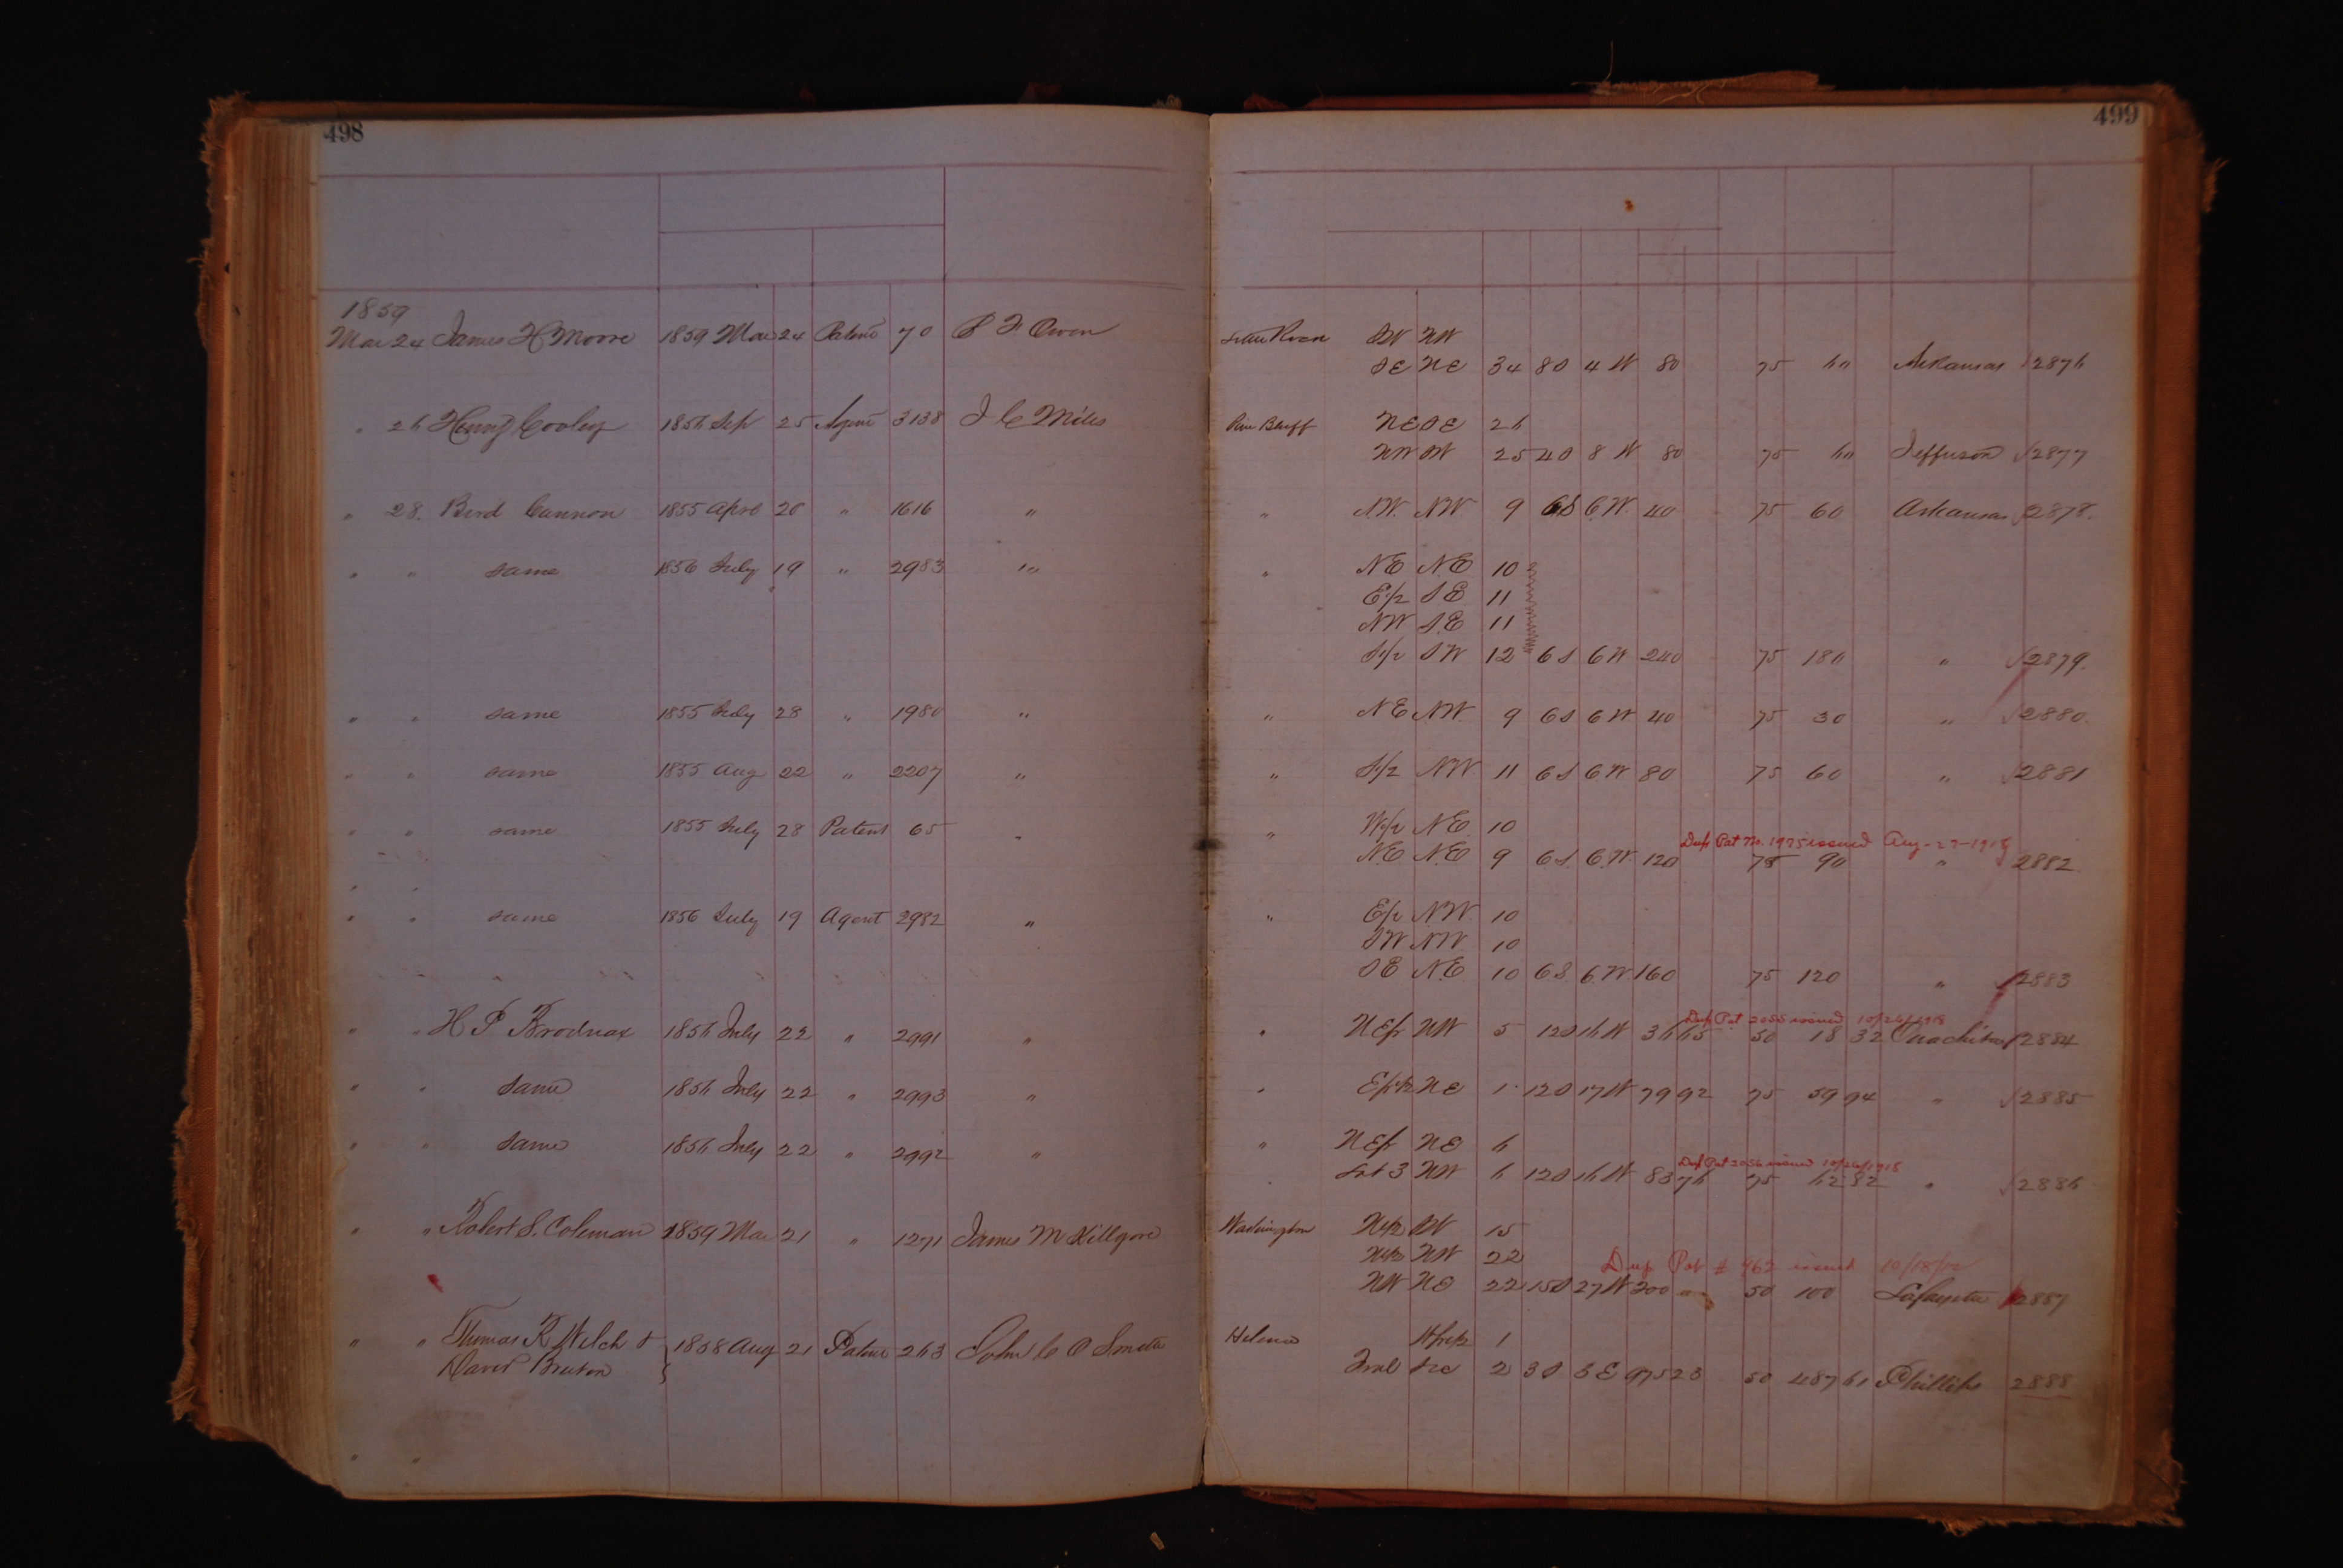 498
499
1859
Mar 24 James H Moore 1859 Mar 24 Patent 70 S F Owen SW NW
SE NE 34 8S 4 W 80 75 60 Arkansas 2876
" 26 Henry Cooley 1856 Sep 25 Agent 3138 J C Miles Pine Bluff NE SE 26
NW SW 25 4S 8 W 80 75 60 Jefferson 2877
" 28. Bird Cannon 1855 Apri 20 " 1616 " " NW. NW 9 6S 6.W. 40 75 60 Arkansas 2878.
" " same 1856 July 19 " 2983 " " NE N.E. 10
E/2 SE 11
NW S.E 11
S/2 SW 12 6S 6W 240 75 180 " 2879.
" " same 1855 July 28 " 1980 " " NE NW. 9 6S 6W 40 75 30 " 2880.
" " same 1855 Aug 22 " 2207 " " S/2 NW. 11 6S 6.W 80 75 60 " 2881
" " same 1855 July 28 Patent 65 " " W/2 N.E. 10
Dup Pat No. 1975 issued Aug-27-1918
N.E N.E 9 6S. 6.W. 120 75 90 " 2882.
" "
" " same 1856 July 19 Agent 2982 " " E/2 NW. 10
SW NW 10
SE N.E 10 6S. 6.W 160 75 120 " 2883
Dup Pat 2055 issued 10/26/1918
" " H P Brodnax 1856 July 22 " 2991 " " NEfr NW 5 12S 16 W 36 65 50 18 32 Ouachita 2884
" " same 1856 July 22 " 2993 " " Efr½ NE 1 12S 17W 79 92 75 59 94 " 2885
" " same 1856 July 22 " 2992 " " NEfr NE 6
Dup Pat 2056 issued 10/26/1918
Lot 3 NW 6 12S 16 W 83 76 75 62 82 " 2886
" " Robert S. Coleman 1859 Mar 21 " 1271 James M Killgore Washington SW 15
NW 22
Dup Pat # 962 issued 10/18/
NW NE 22 15S 27W 200 50 100 Lafayette 2887
" " Thomas R Welch & 1858 Aug 21 Patent 263 John C O Smith Helena Wfr½ 1
David Bruton
Frnl Sec 2 3S 3 E 975 23 50 487 61 Phillips 2888
" "